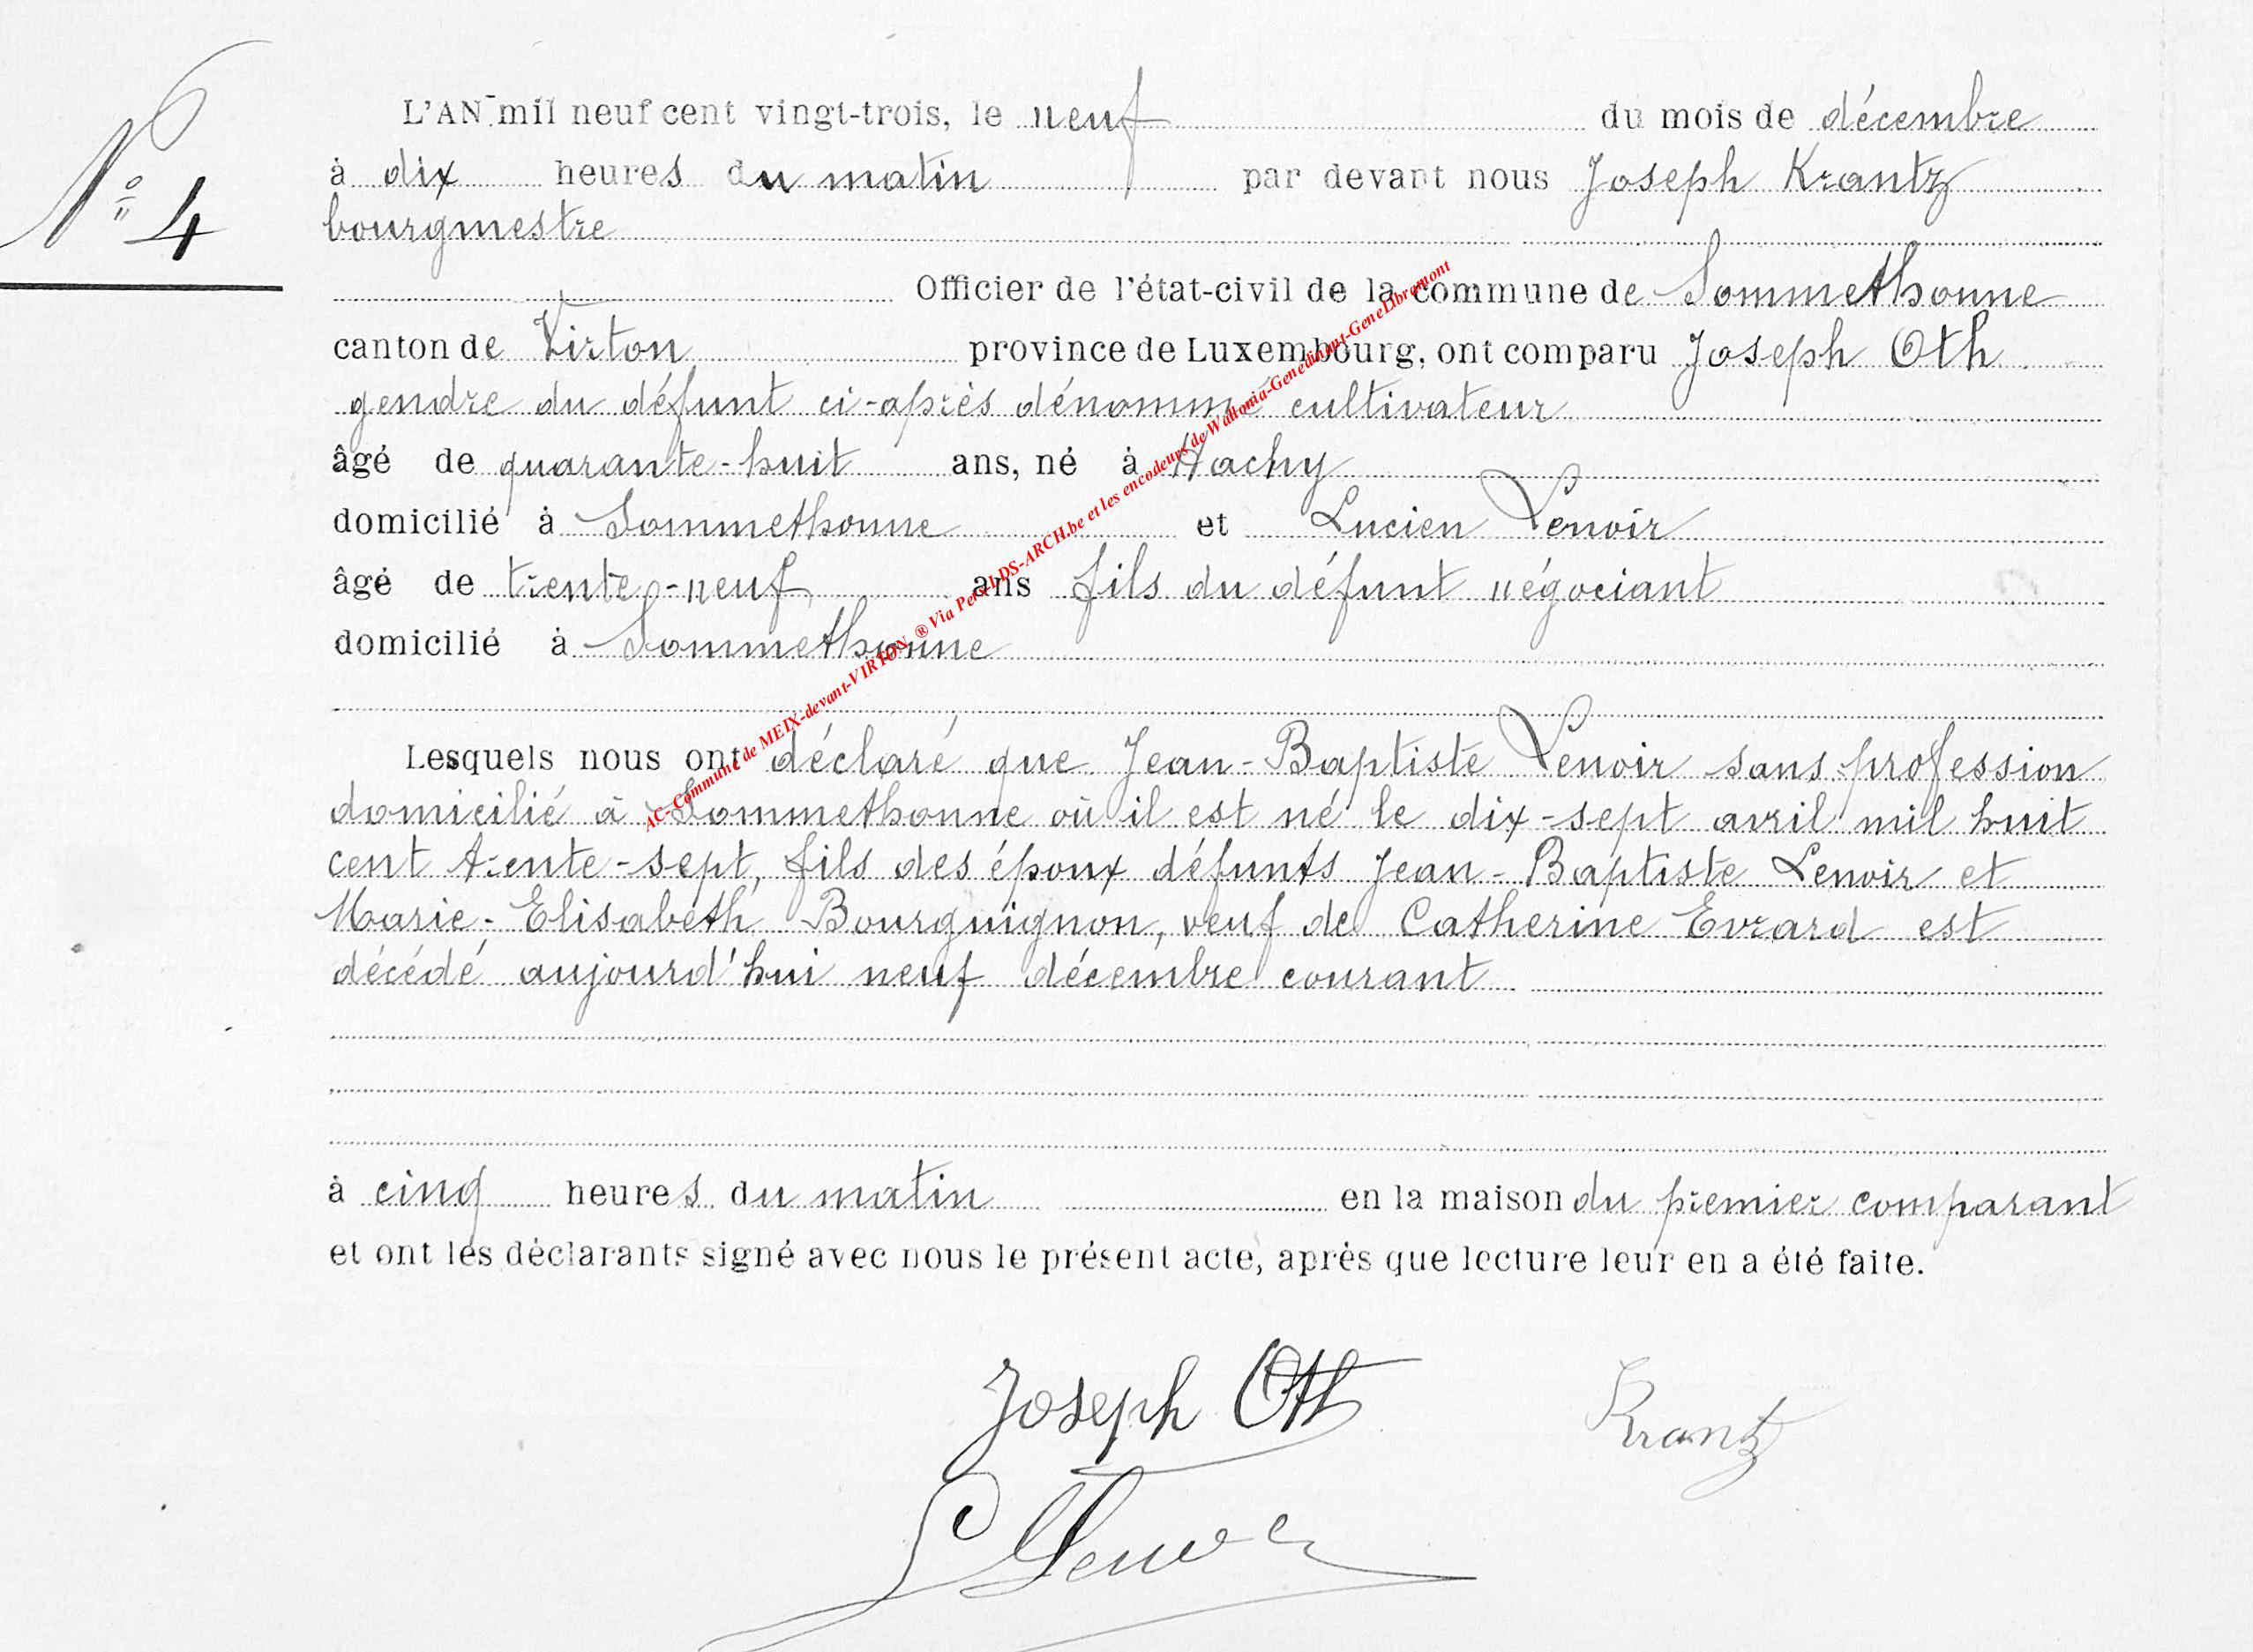 N° 4
L'AN mil neuf cent vingt-trois, le neuf du mois de décembre
à dix heures du matin par devant nous Joseph Krantz
bourgmestre
Officier de l'état-civil de la commune de Sommethonne
canton de Virton province de Luxembourg, ont comparu Joseph Oth
gendre du défunt ci-après dénommé cultivateur
âgé de quarante-huit ans, né à Hachy
domicilié à Sommethonne et Lucien Lenoir
âgé de trente-neuf ans fils du défunt négociant
domicilié à Sommethonne
Lesquels nous ont déclaré que Jean-Baptiste Lenoir sans profession
domicilié à Sommethonne où il est né le dix-sept avril mil huit
cent trente-sept, fils des époux défunts Jean-Baptiste Lenoir et
Marie-Elisabeth Bourguignon, veuf de Catherine Evrard est
décédé aujourd'hui neuf décembre courant
à cinq heures du matin en la maison du premier comparant
et ont les déclarants signé avec nous le présent acte, après que lecture leur en a été faite.
Joseph Oth
Krantz
L Lenoir
AC-Commune de MEIX-devant-VIRTON ® Via Pers-LDS-ARCH.be et les encodeurs de Wallonia-Genedinant-GeneLibramont